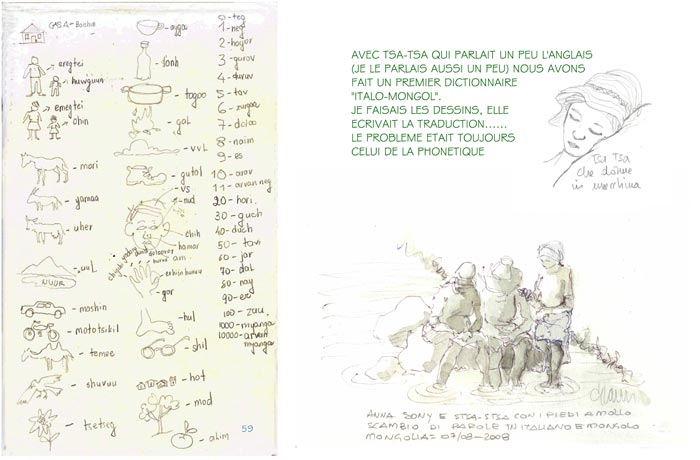 CASA - Baohn
aregtei
huwguun
emegtei
ohin
mori
yamaa
uher
uul
NUUR
mashin
mototsikil
temee
shuvuu
tsetseg
ayga
lonh
togoo
gal
vvL
gutal
vs
nud
chih
hamar
am
erhiin huruu
gar
hul
shil
hot
mod
alim
0 - teg
1 - neg
2 - hoyor
3 - gurav
4 - duruv
5 - tav
6 - zurgaa
7 - doloo
8 - naim
9 - es
10 - arav
11 - arvan neg
20 - hori
30 - guch
40 - duch
50 - tavi
60 - jar
70 - dal
80 - nay
90 - er
100 - zuu
1000 - myanga
10000 - arvan
myanga
59
AVEC TSA-TSA QUI PARLAIT UN PEU L'ANGLAIS
(JE LE PARLAIS AUSSI UN PEU) NOUS AVONS
FAIT UN PREMIER DICTIONNAIRE
"ITALO-MONGOL".
JE FAISAIS LES DESSINS, ELLE
ECRIVAIT LA TRADUCTION......
LE PROBLEME ETAIT TOUJOURS
CELUI DE LA PHONETIQUE
Tsa Tsa
che dorme
in macchina
ANNA SONY E STSA-STSA CON I PIEDI A MOLLO
SCAMBIO DI PAROLE IN ITALIANO E MONGOLO
MONGOLIA = 07/08-2008